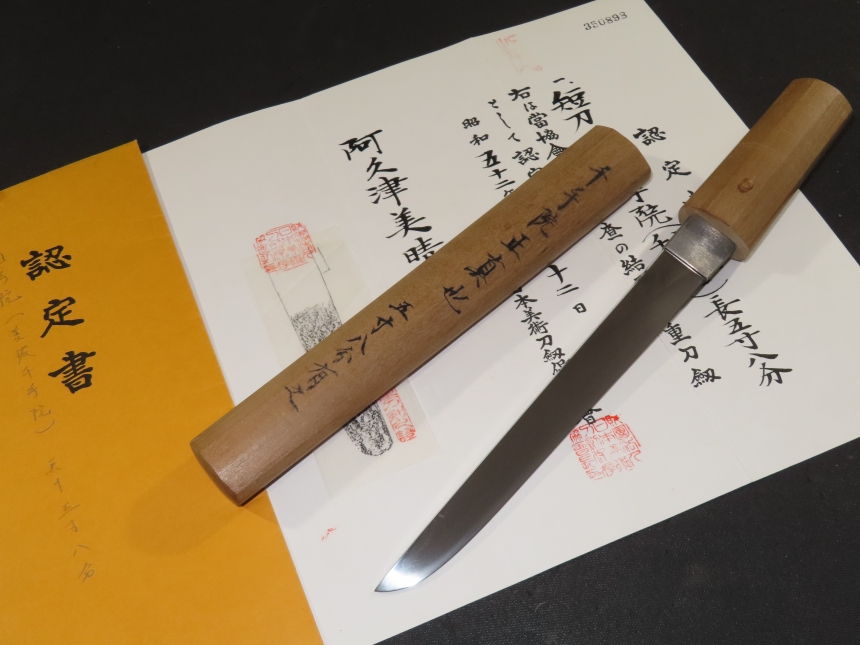 350893
認定
一、短刀
手院(千
長五寸八分
右は當協會
査の結
重刀劔
として認定
昭和五十二
十二日
本美術刀劔保
阿久津美晴
千手院正真也
五寸八分有之
認定書
手院(美濃千手院)
五寸八分